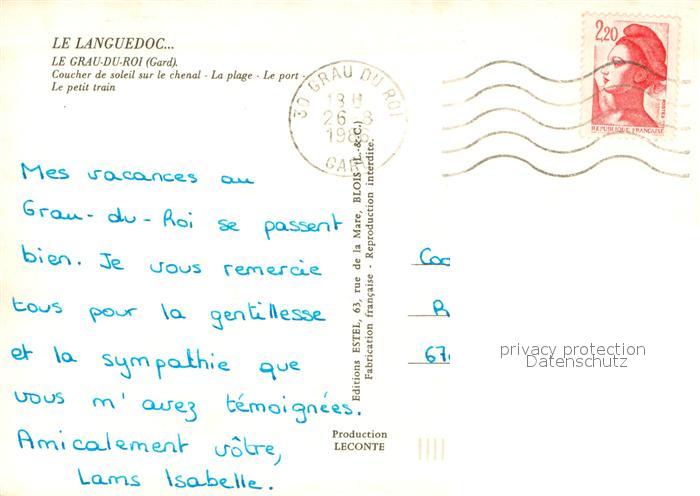 LE LANGUEDOC...
LE GRAU-DU-ROI (Gard).
Coucher de soleil sur le chenal - La plage - Le port -
Le petit train
30 GRAU DU ROI
18 H
26 - 8
GARD
2,20
POSTES
REPUBLIQUE FRANÇAISE
Mes vacances au
Grau-du-Roi se passent
bien. Je vous remercie
tous pour la gentillesse
et la sympathie que
vous m'avez témoignées.
Amicalement vôtre,
Lams Isabelle.
Editions ESTEL, 63, rue de la Mare, BLOIS (L.-&-C.)
Fabrication française - Reproduction interdite.
Production
LECONTE
67
privacy protection
Datenschutz